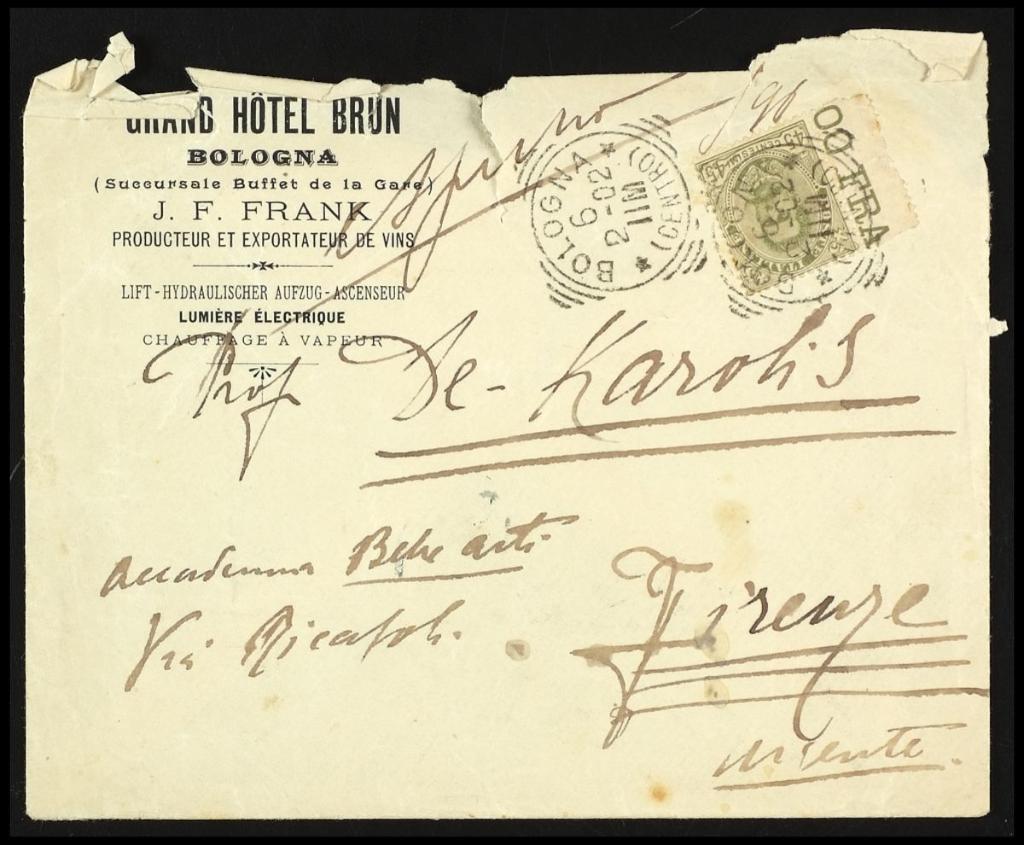 GRAND HÔTEL BRUN
BOLOGNA
(Succursale Buffet de la Gare)
J. F. FRANK
PRODUCTEUR ET EXPORTATEUR DE VINS
LIFT-HYDRAULISCHER AUFZUG-ASCENSEUR
LUMIÈRE ÉLECTRIQUE
CHAUFFAGE À VAPEUR
Espresso
BOLOGNA
6
2-02
11M
(CENTRO)
45 CENTESIMI 45
Prof De-Karolis
Accademia Belle arti
Via Ricasoli.
Firenze
urgente.